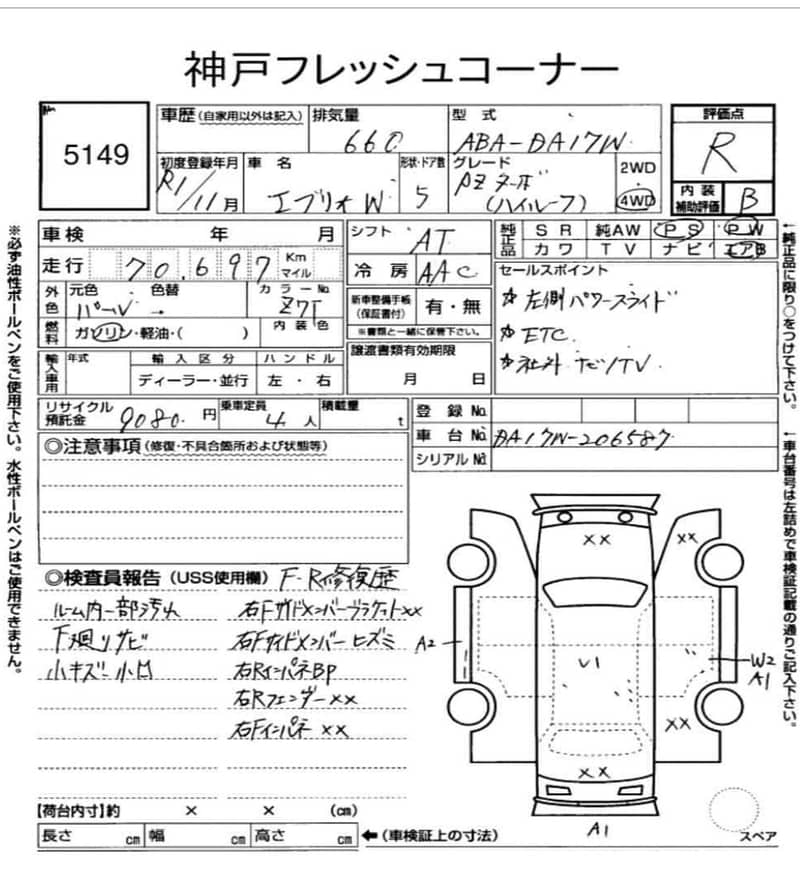 神戸フレッシュコーナー
5149
車歴(自家用以外は記入)
排気量
660
型式
ABA-DA17W
評価点
R
初度登録年月
R1/11月
車名
エブリィW
形状・ドア数
5
グレード
PZターボ
(ハイルーフ)
2WD
4WD
内装
補助評価
B
車検 年 月
シフト
AT
純正品
SR 純AW PS PW
カワ TV ナビ エアB
走行
70,697
Km
マイル
冷房
AAC
セールスポイント
☆左側パワースライド
☆ETC.
☆社外ナビ/TV.
外色
元色 色替
パール →
カラーNo.
Z7T
新車整備手帳
(保証書付)
有・無
※書類と一緒に保管下さい。
燃料
ガソリン・軽油・( )
内装色
輸入車用
年式
輸入区分
ディーラー・並行
ハンドル
左・右
譲渡書類有効期限
月 日
リサイクル
預託金
9080.円
乗車定員
4人
積載量
t
登録No.
車台No.
DA17W-206587
シリアルNo.
◎注意事項(修復・不具合箇所および状態等)
◎検査員報告(USS使用欄)F・R修復歴
ルーム内一部汚れ
下廻りサビ
小キズ・小凹
右Fサイドメンバーブラケット××
右Fサイドメンバーヒズミ
右RインパネBP
右Rフェンダー××
右Fインパネ××
××
××
A2
U1
W2
A1
××
××
A1
スペア
【荷台内寸】約 × × (cm)
長さ cm 幅 cm 高さ cm
←(車検証上の寸法)
※必ず油性ボールペンをご使用下さい。水性ボールペンはご使用できません。
←純正品に限り○をつけて下さい。
←車台番号は左詰めで車検証記載の通りご記入下さい。